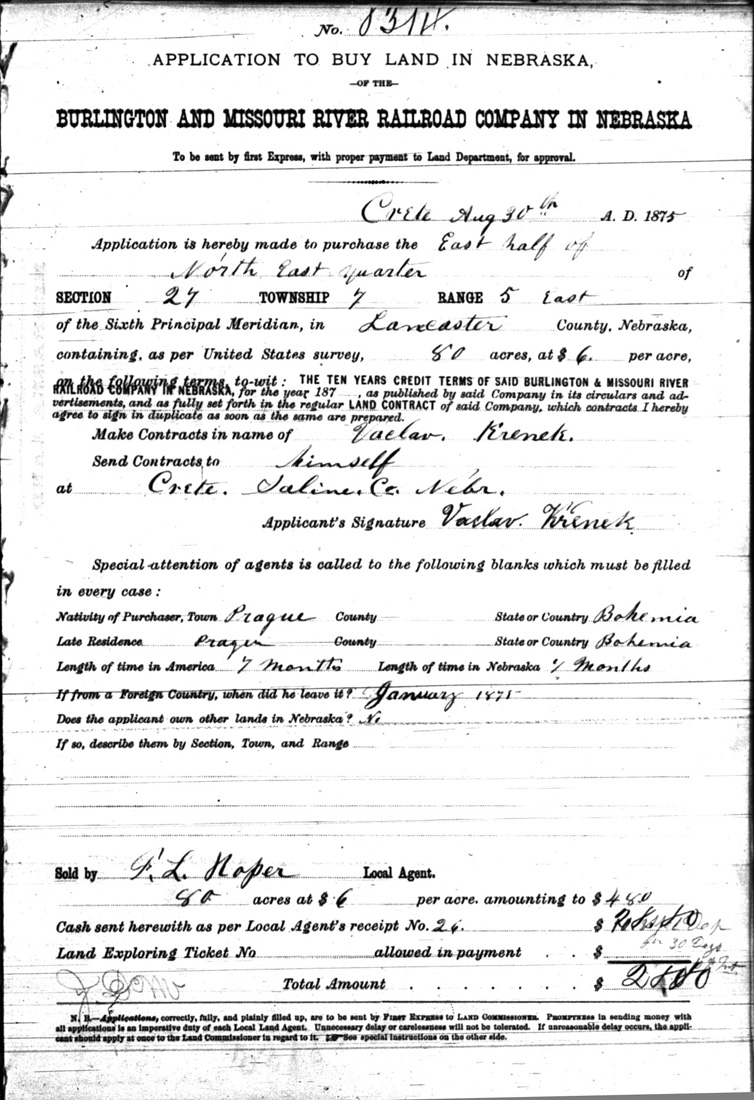 No. 8314.
APPLICATION TO BUY LAND IN NEBRASKA,
—OF THE—
BURLINGTON AND MISSOURI RIVER RAILROAD COMPANY IN NEBRASKA
To be sent by first Express, with proper payment to Land Department, for approval.
Crete Aug 30th A. D. 1875
Application is hereby made to purchase the East half of
North East quarter of
SECTION 27 TOWNSHIP 7 RANGE 5 East
of the Sixth Principal Meridian, in Lancaster County, Nebraska,
containing, as per United States survey, 80 acres, at $ 6. per acre,
on the following terms, to-wit: THE TEN YEARS CREDIT TERMS OF SAID BURLINGTON & MISSOURI RIVER
RAILROAD COMPANY IN NEBRASKA, for the year 187 , as published by said Company in its circulars and ad-
vertisements, and as fully set forth in the regular LAND CONTRACT of said Company, which contracts I hereby
agree to sign in duplicate as soon as the same are prepared.
Make Contracts in name of Vaclav. Krenek.
Send Contracts to himself
at Crete. Saline. Co. Nebr.
Applicant's Signature Vaclav. Křenek
Special attention of agents is called to the following blanks which must be filled
in every case:
Nativity of Purchaser, Town Prague County State or Country Bohemia
Late Residence Prague County State or Country Bohemia
Length of time in America 7 months Length of time in Nebraska months
If from a Foreign Country, when did he leave it? January 1875
Does the applicant own other lands in Nebraska? No
If so, describe them by Section, Town, and Range
Sold by F. L. Local Agent.
80 acres at $ 6 per acre. amounting to $ 480
Cash sent herewith as per Local Agent's receipt No. 26. $ Dep
for 30 Days
Land Exploring Ticket No allowed in payment . . $
Total Amount . . . . . . . $
N. B.—Applications, correctly, fully, and plainly filled up, are to be sent by FIRST EXPRESS to LAND COMMISSIONER. PROMPTNESS in sending money with
all applications is an imperative duty of each Local Land Agent. Unnecessary delay or carelessness will not be tolerated. If unreasonable delay occurs, the appli-
cant should apply at once to the Land Commissioner in regard to it. ☞See special instructions on the other side.